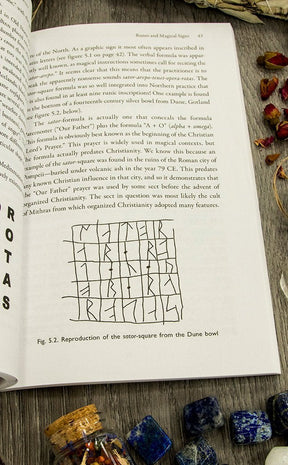 Runes and Magical Signs 43
of the North. As a graphic sign it most often appears inscribed in
letters (see figure 5.1 on page 42). The verbal formula was appar-
well known, as magical instructions sometimes call for reciting the
It seems clear that this means that the practitioner is to
speak the sonorous sounds sator-arepo-tenet-opera-rotas. The
square formula was so well integrated into Northern practice that
found in at least nine runic inscriptions! One example is found
the bottom of a fourteenth century silver bowl from Dune, Gotland
figure 5.2, below).
The sator-formula is actually one that conceals the formula
paternoster ("Our Father") plus the formula "A + O" (alpha + omega).
This formula is obviously best known as the beginning of the Christian
"Lord's Prayer." This prayer is widely used in magical contexts, but
the formula actually predates Christianity. We know this because an
example of the sator-square was found in the ruins of the Roman city of
Pompeii—buried under volcanic ash in the year 79 CE. This predates
any known Christian influence in that city, and so it demonstrates that
the "Our Father" prayer was used by some sect before the advent of
organized Christianity. The sect in question was most likely the cult
of Mithras from which organized Christianity adopted many features.
Fig. 5.2. Reproduction of the sator-square from the Dune bowl
R
O
T
A
S